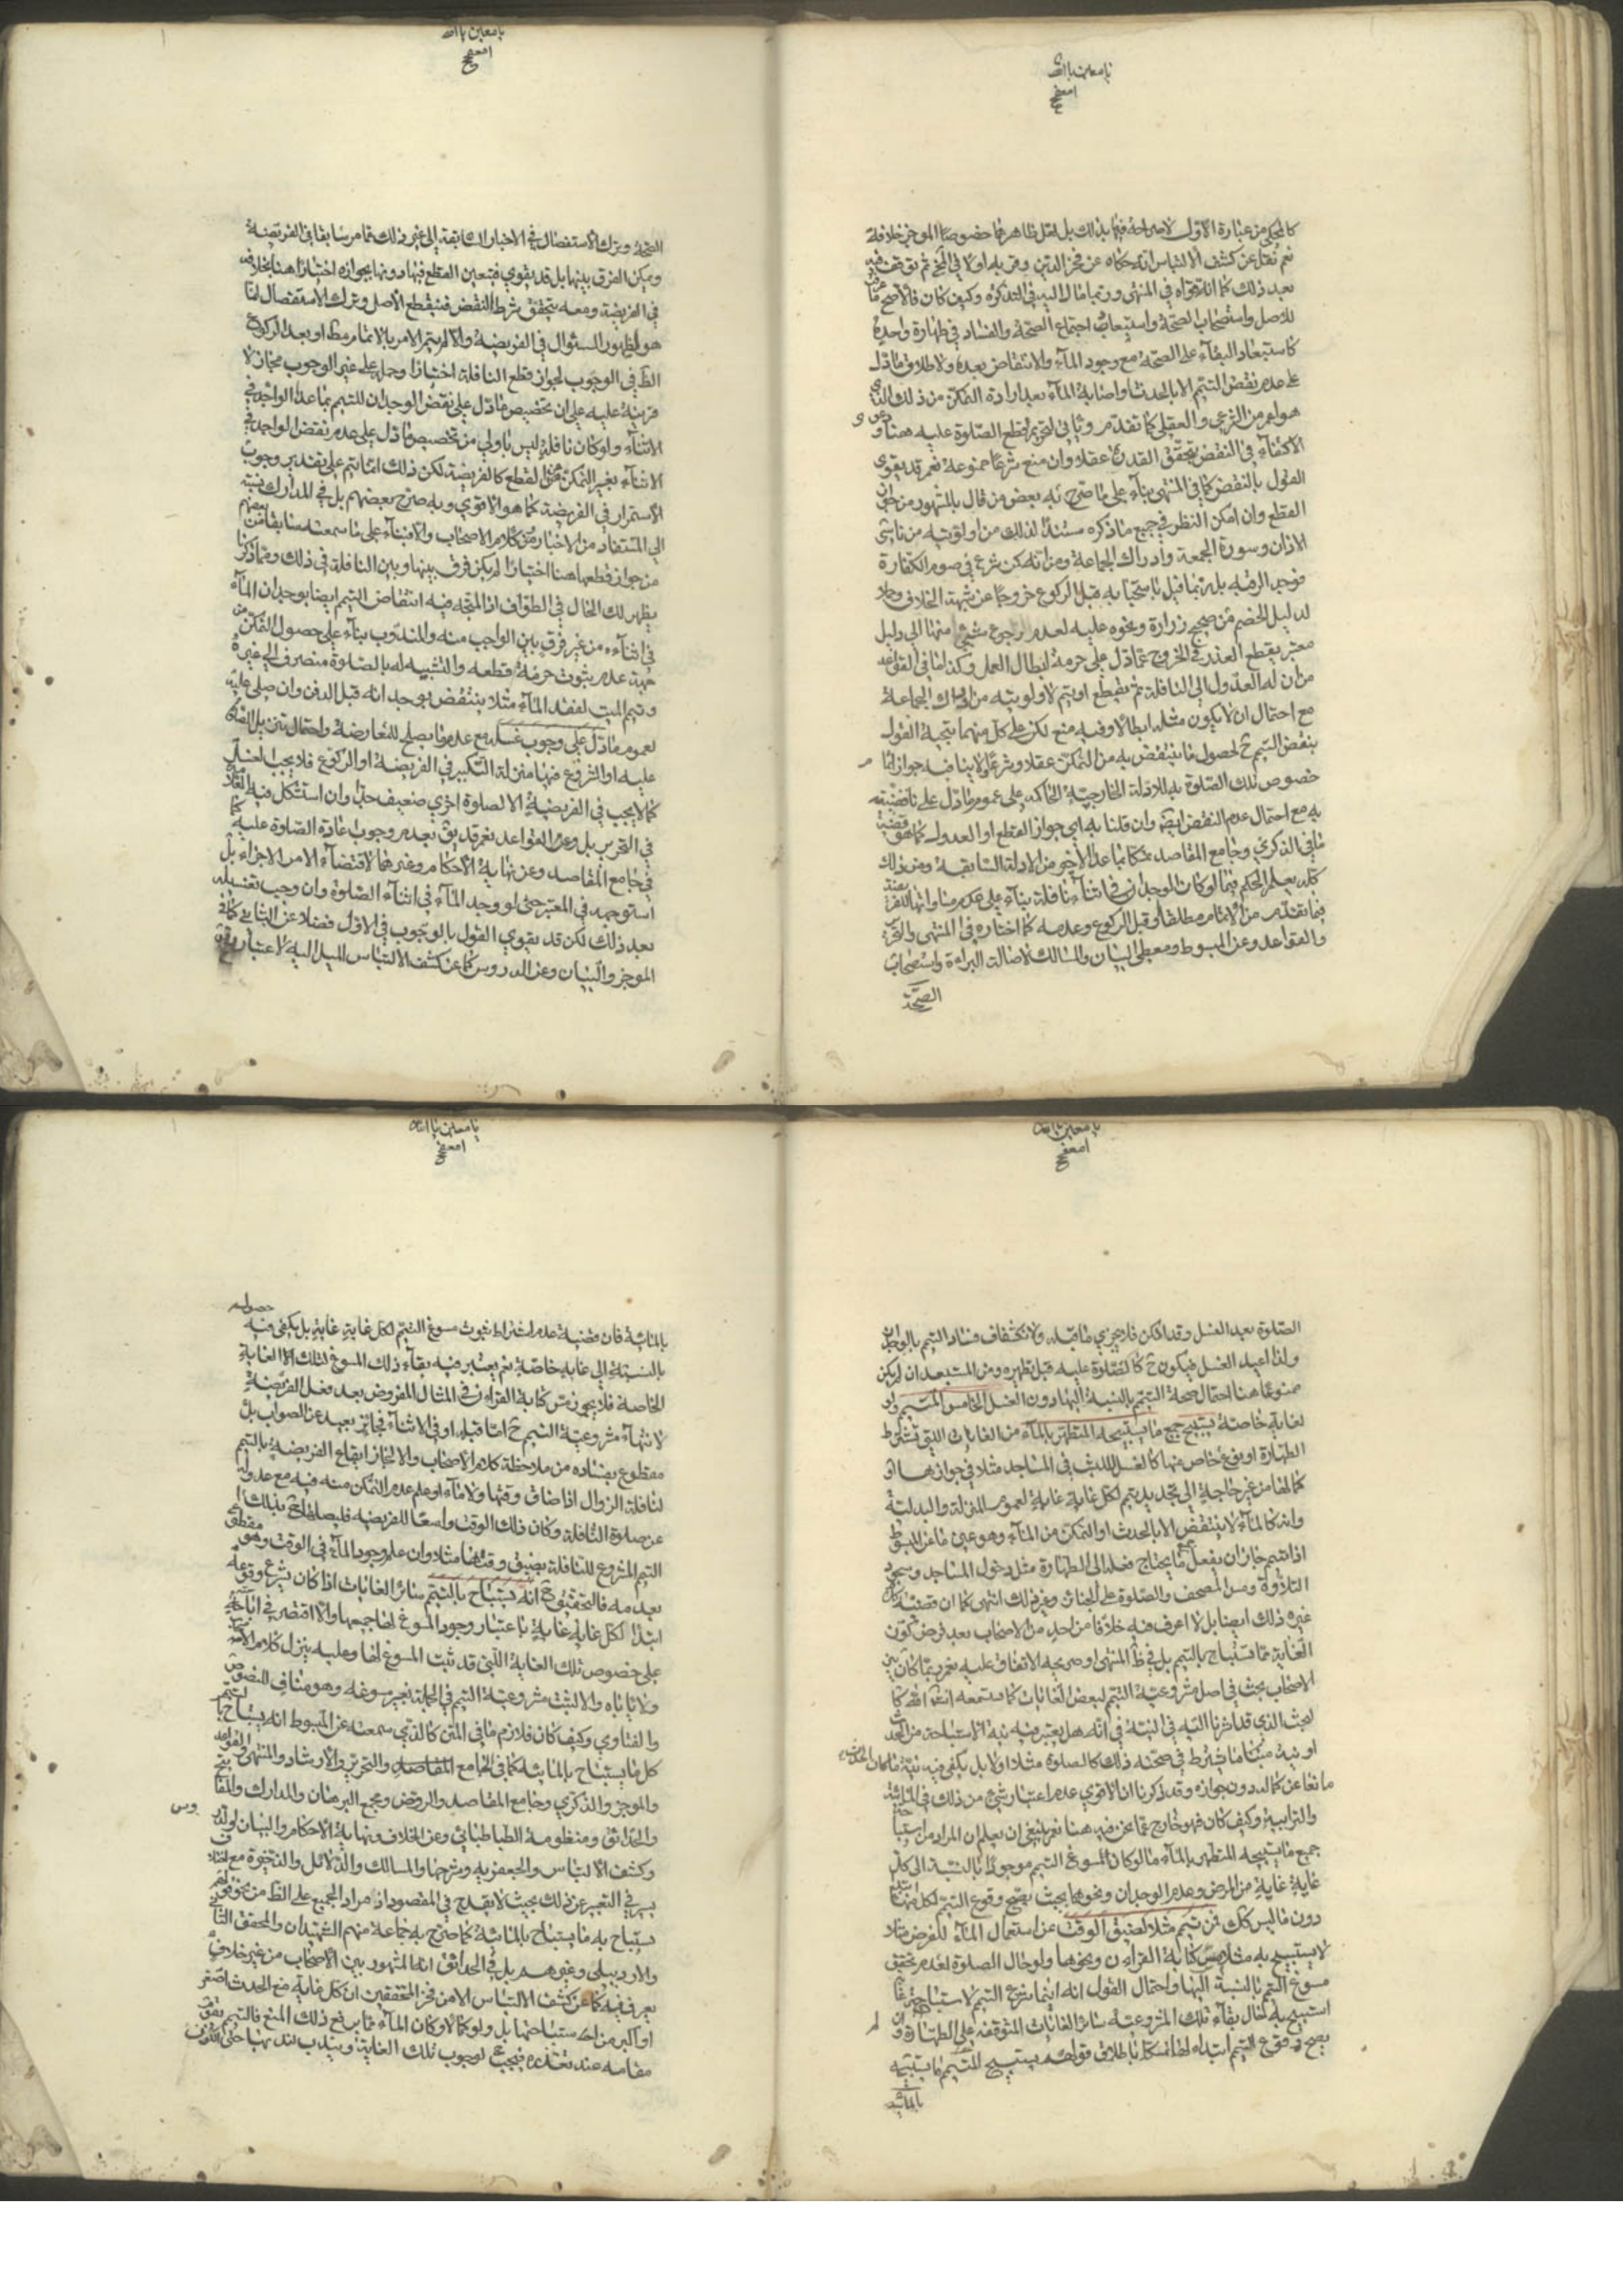 يا معين يا الله
كالمحكي من عبارة الأول لا صراحة فيها بذلك بل لعل ظاهرهما خصوصا الموجز خلافه
نعم نقل عن كشف الالتباس انه حكاه عن فخر الدين وقربه اولا في ثم توقف فيه
بعد ذلك كما انه قواه في المنتهى وربما مال اليه في التذكرة وكيف كان فالأصح
للأصل واستصحاب الصحة واستبعاد اجتماع الصحة والفساد في طهارة واحدة
كاستبعاد البقاء على الصحة مع وجود الماء والانتقاض بعده ولاطلاق ما دل
على عدم نقض التيمم الا بالحدث واصابة الماء بعد ارادة التمكن من ذلك الذي
هو اعم من الشرعي والعقلي كما تقدم وثاني لتحريم قطع الصلوة عليه هنا و
الاكتفاء في النقض بتحقق القدرة عقلا وان منع شرعا ممنوعة نعم قد يقوى
القول بالنقض كما في المنتهى بناء على ما صرح به بعض من قال بالمشهور من جواز
القطع وان امكن النظر في جميع ما ذكره سندا لذلك من اولويته من ناسي
الاذان وسورة الجمعة وادراك الجماعة ومن انه كمن شرع في صوم الكفارة
فوجد الرقبة بل ربما قيل باستحبابه قبل الركوع خروجا عن شبهة الخلاف
لدليل الخصم من صحيح زرارة ونحوه عليه لعدم رجوع شيء منها الى دليل
معتبر يقطع العذر في الخروج عما دل على حرمة ابطال العمل وكذا ما في القواعد
من ان له العدول الى النافلة ثم يقطع او يتم لاولويته من ادراك الجماعة
مع احتمال ان لا يكون مثله ابطالا وفيه منع لكن على كل منهما يتجه القول
بنقض التيمم ح لحصول ما ينتقض به من التمكن عقلا وشرعا ولا ينافيه جواز اتمام
خصوص تلك الصلوة به للادلة الخارجية الحاكمة على عموم ما دل على ناقضيته
به مع احتمال عدم النقض ايضا وان قلنا به اي جواز القطع او العدول كما هو قضية
ما في الذكرى وجامع المقاصد متمسكا بما عدا الاخير من الادلة السابقة ومن ذلك
كله يعلم الحكم فيما لو كان الوجدان في اثناء نافلة بناء على عدم مساواتها للفريضة
فيما تقدم من الاتمام مطلقا او قبل الركوع وعدمه كما اختاره في المنتهى والتحرير
والقواعد وعن المبسوط ومعطي البيان والمسالك لاصالة البراءة واستصحاب
الصحة
يا معين يا الله
الصحة وترك الاستفصال في الاخبار السابقة الى غير ذلك مما مر سابقا في الفريضة
ويمكن الفرق بينها بل قد يقوى فيتعين القطع فيها دونها بجوازه اختيارا هنا بخلافه
في الفريضة ومعه يتحقق شرط النقض فينقطع الأصل وترك الاستفصال انما
هو لظهور السؤال في الفريضة والا لم يتم الامر بالاتمام مطلقا او بعد الركوع
الظ في الوجوب لجواز قطع النافلة اختيارا وحمله على غير الوجوب مجاز لا
قرينة عليه على ان تخصيص ما دل على نقض الوجدان للتيمم بما عدا الواجد في
الاثناء ولو كان نافلة ليس باولى من تخصيص ما دل على عدم نقض الواجد في
الاثناء بغير التمكن من القطع كالفريضة لكن ذلك انما يتم على تقدير وجوب
الاستمرار في الفريضة كما هو الاقوى وبه صرح بعضهم بل في المدارك نسبته
الى المستفاد من الاخبار وكلام الاصحاب والا فبناء على ما سمعته سابقا من بعضهم
من جواز قطعها هنا اختيارا لم يكن فرق بينها وبين النافلة في ذلك ومما ذكرنا
يظهر لك الحال في الطواف اذ المتجه فيه انتقاض التيمم ايضا بوجدان الماء
في اثنائه من غير فرق بين الواجب منه والمندوب بناء على حصول التمكن من
جهة عدم ثبوت حرمة قطعه والتشبيه له بالصلوة منصرف الى غيره
وتيمم الميت لفقد الماء مثلا ينتقض بوجدانه قبل الدفن وان صلى عليه
لعموم ما دل على وجوب غسله مع عدم ما يصلح للمعارضة واحتمال تنزيل الصلوة
عليه او الشروع فيها منزلة التكبير في الفريضة او الركوع فلا يجب الغسل
كما لا يجب في الفريضة الا لصلوة اخرى ضعيف جدا وان استشكل فيه
في التحرير بل وعن القواعد نعم قد يق بعدم وجوب اعادة الصلوة عليه كما
في جامع المقاصد وعن نهاية الأحكام وغيرهما لاقتضاء الامر الاجزاء بل
استوجهه في المعتبر حتى لو وجد الماء في اثناء الصلوة وان وجب تغسيله
بعد ذلك لكن قد يقوى القول بالوجوب في الاول فضلا عن الثاني كما في
الموجز والبيان وعن الدروس كما عن كشف الالتباس الميل اليه لاعتبار وقوع
يا معين يا الله
الصلوة بعد الغسل وقد امكن فلا يجزي ما قبله ولانكشاف فساد التيمم بالوجدان
ولذا اعيد الغسل فيكون ح كالصلوة عليه قبل تطهيره ومن المستبعد ان لم يكن
ممنوعا هنا احتمال صحة التيمم بالنسبة اليها دون الغسل الخامس المتيمم ولو
لغاية خاصة يستبيح جميع ما يستبيحه المتطهر بالماء من الغايات التي تشترط
الطهارة او نوع خاص منها كالغسل للبث في المساجد مثلا في جوازها او
كمالها من غير حاجة الى تجديد تيمم لكل غاية غاية لعموم المنزلة والبدلية
وانه كالماء لا ينتقض الا بالحدث او التمكن من الماء وهو عين ما عن المبسوط
اذا تيمم جاز ان يفعل جميع ما يحتاج فعله الى الطهارة مثل دخول المساجد وسجود
التلاوة ومس المصحف والصلوة على الجنائز وغير ذلك انتهى كما ان قضية كل
غيره ذلك ايضا بل لا اعرف فيه خلافا من احد من الاصحاب بعد فرض كون
الغاية مما تستباح بالتيمم بل في ظ المنتهى او صريحه الاتفاق عليه نعم ربما كان بين
الاصحاب بحث في اصل مشروعية التيمم لبعض الغايات كما ستسمعه انشا الله كا
لبحث الذي قد اشرنا اليه في النية في انه هل يعتبر فيه نية الاستباحة من الحدث
او نية مبيحا ما اشترط في صحته ذلك كالصلوة مثلا اولا بل يكفي فيه نية ما كان الحدث
مانعا عن كماله دون جوازه وقد ذكرنا ان الاقوى عدم اعتبار شيء من ذلك في المائية
والترابية وكيف كان فهو خارج عما نحن فيه هنا نعم ينبغي ان يعلم ان المراد من استباحة
جميع ما يستبيحه المتطهر بالماء ما لو كان المسوغ للتيمم موجودا بالنسبة الى كل
غاية غاية من المرض وعدم الوجدان ونحوهما بحيث يصح وقوع التيمم لكل منها
دون ما ليس كك فمن تيمم مثلا لضيق الوقت عن استعمال الماء للفرض مثلا
لا يستبيح به مثلا مس كتابة القرآن ونحوها ولو حال الصلوة لعدم تحقق
مسوغ التيمم بالنسبة اليها واحتمال القول انه انما شرع التيمم لاستباحة غاية
استبيح به حال بقاء تلك المشروعية سائر الغايات المتوقفة على الطهارة وان لم
يصح وقوع التيمم ابتداء لها تمسكا باطلاق قولهم يستبيح المتيمم ما يستبيحه
بالمائية
يا معين يا الله
بالمائية فان قضية عدم اشتراط ثبوت مسوغ التيمم لكل غاية غاية بل يكفي فيه حصوله
بالنسبة الى غاية خاصة نعم يعتبر فيه بقاء ذلك المسوغ لتلك الغاية
الخاصة فلا يجوز مس كتابة القرآن في المثال المفروض بعد فعل الفريضة
لانتهاء مشروعية التيمم ح اما قبله او في الاثناء فجائز بعيد عن الصواب بل
مقطوع بفساده من ملاحظة كلام الاصحاب والا لجاز ايقاع الفريضة بالتيمم
لنافلة الزوال اذا ضاق وقتها ولا ماء او علم عدم التمكن منه فيه مع عدوله
عن صلوة النافلة وكان ذلك الوقت واسعا للفريضة فليصلها ح بذلك
التيمم المشروع للنافلة بضيق وقتها مثلا وان علم وجود الماء في الوقت وهو مقطوع
بعدمه فالتحقيق ح انه يستباح بالتيمم سائر الغايات اذا كان يشرع وقوعه
ابتداء لكل غاية غاية باعتبار وجود المسوغ لها جميعها والا اقتصر في اباحته
على خصوص تلك الغاية التي قد ثبت المسوغ لها وعليه ينزل كلام الاصحاب
ولا يأباه والا لثبت مشروعية التيمم في الجملة بغير مسوغه وهو مناف للنصوص
والفتاوى وكيف كان فلازم ما في المتن كالذي سمعته عن المبسوط انه يستباح بالتيمم
كل ما يستباح بالمائية كما في الجامع والتحرير والارشاد والمنتهى والقواعد
والموجز والذكرى وجامع المقاصد والروض ومجمع البرهان والمدارك والمفاتيح
والحدائق ومنظومة الطباطبائي وعن الخلاف ونهاية الاحكام والبيان والدروس
وكشف الالتباس والجعفرية وشرحها والمسالك والدلائل والذخيرة مع اختلاف
يسير في التعبير عن ذلك بحيث لا يقدح في المقصود اذ مراد الجميع على الظ من نحو قولهم
يستباح به ما يستباح بالمائية كما صرح به جماعة منهم الشهيدان والمحقق الثاني
والاردبيلي وغيرهم بل في الحدائق انه المشهور بين الاصحاب من غير خلاف
يعرف فيه كما عن كشف الالتباس الا من فخر المحققين ان كل غاية مع الحدث اصغر
او اكبر من استباحتها بل ولو كمالا وكان الماء مما يرفع ذلك المنع فالتيمم يقوم
مقامه عند تعذره فيجب لوجوب تلك الغاية ويندب لندبها